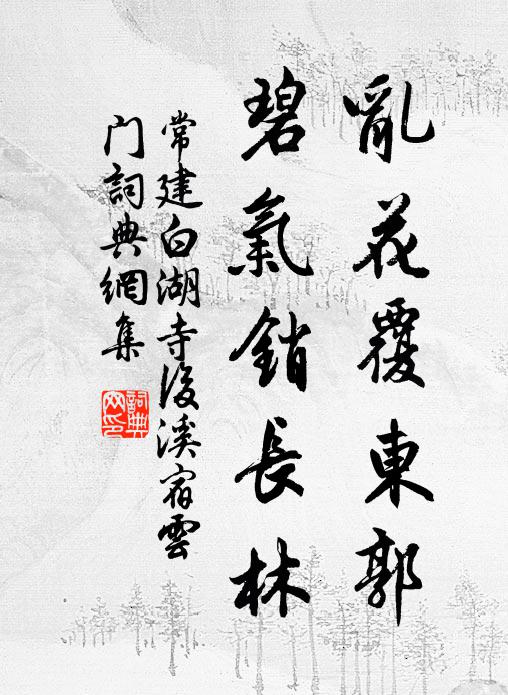 亂花覆東郭
碧氣銷長林
常建白湖寺後溪宿雲
门詞典網集
詞典
网印